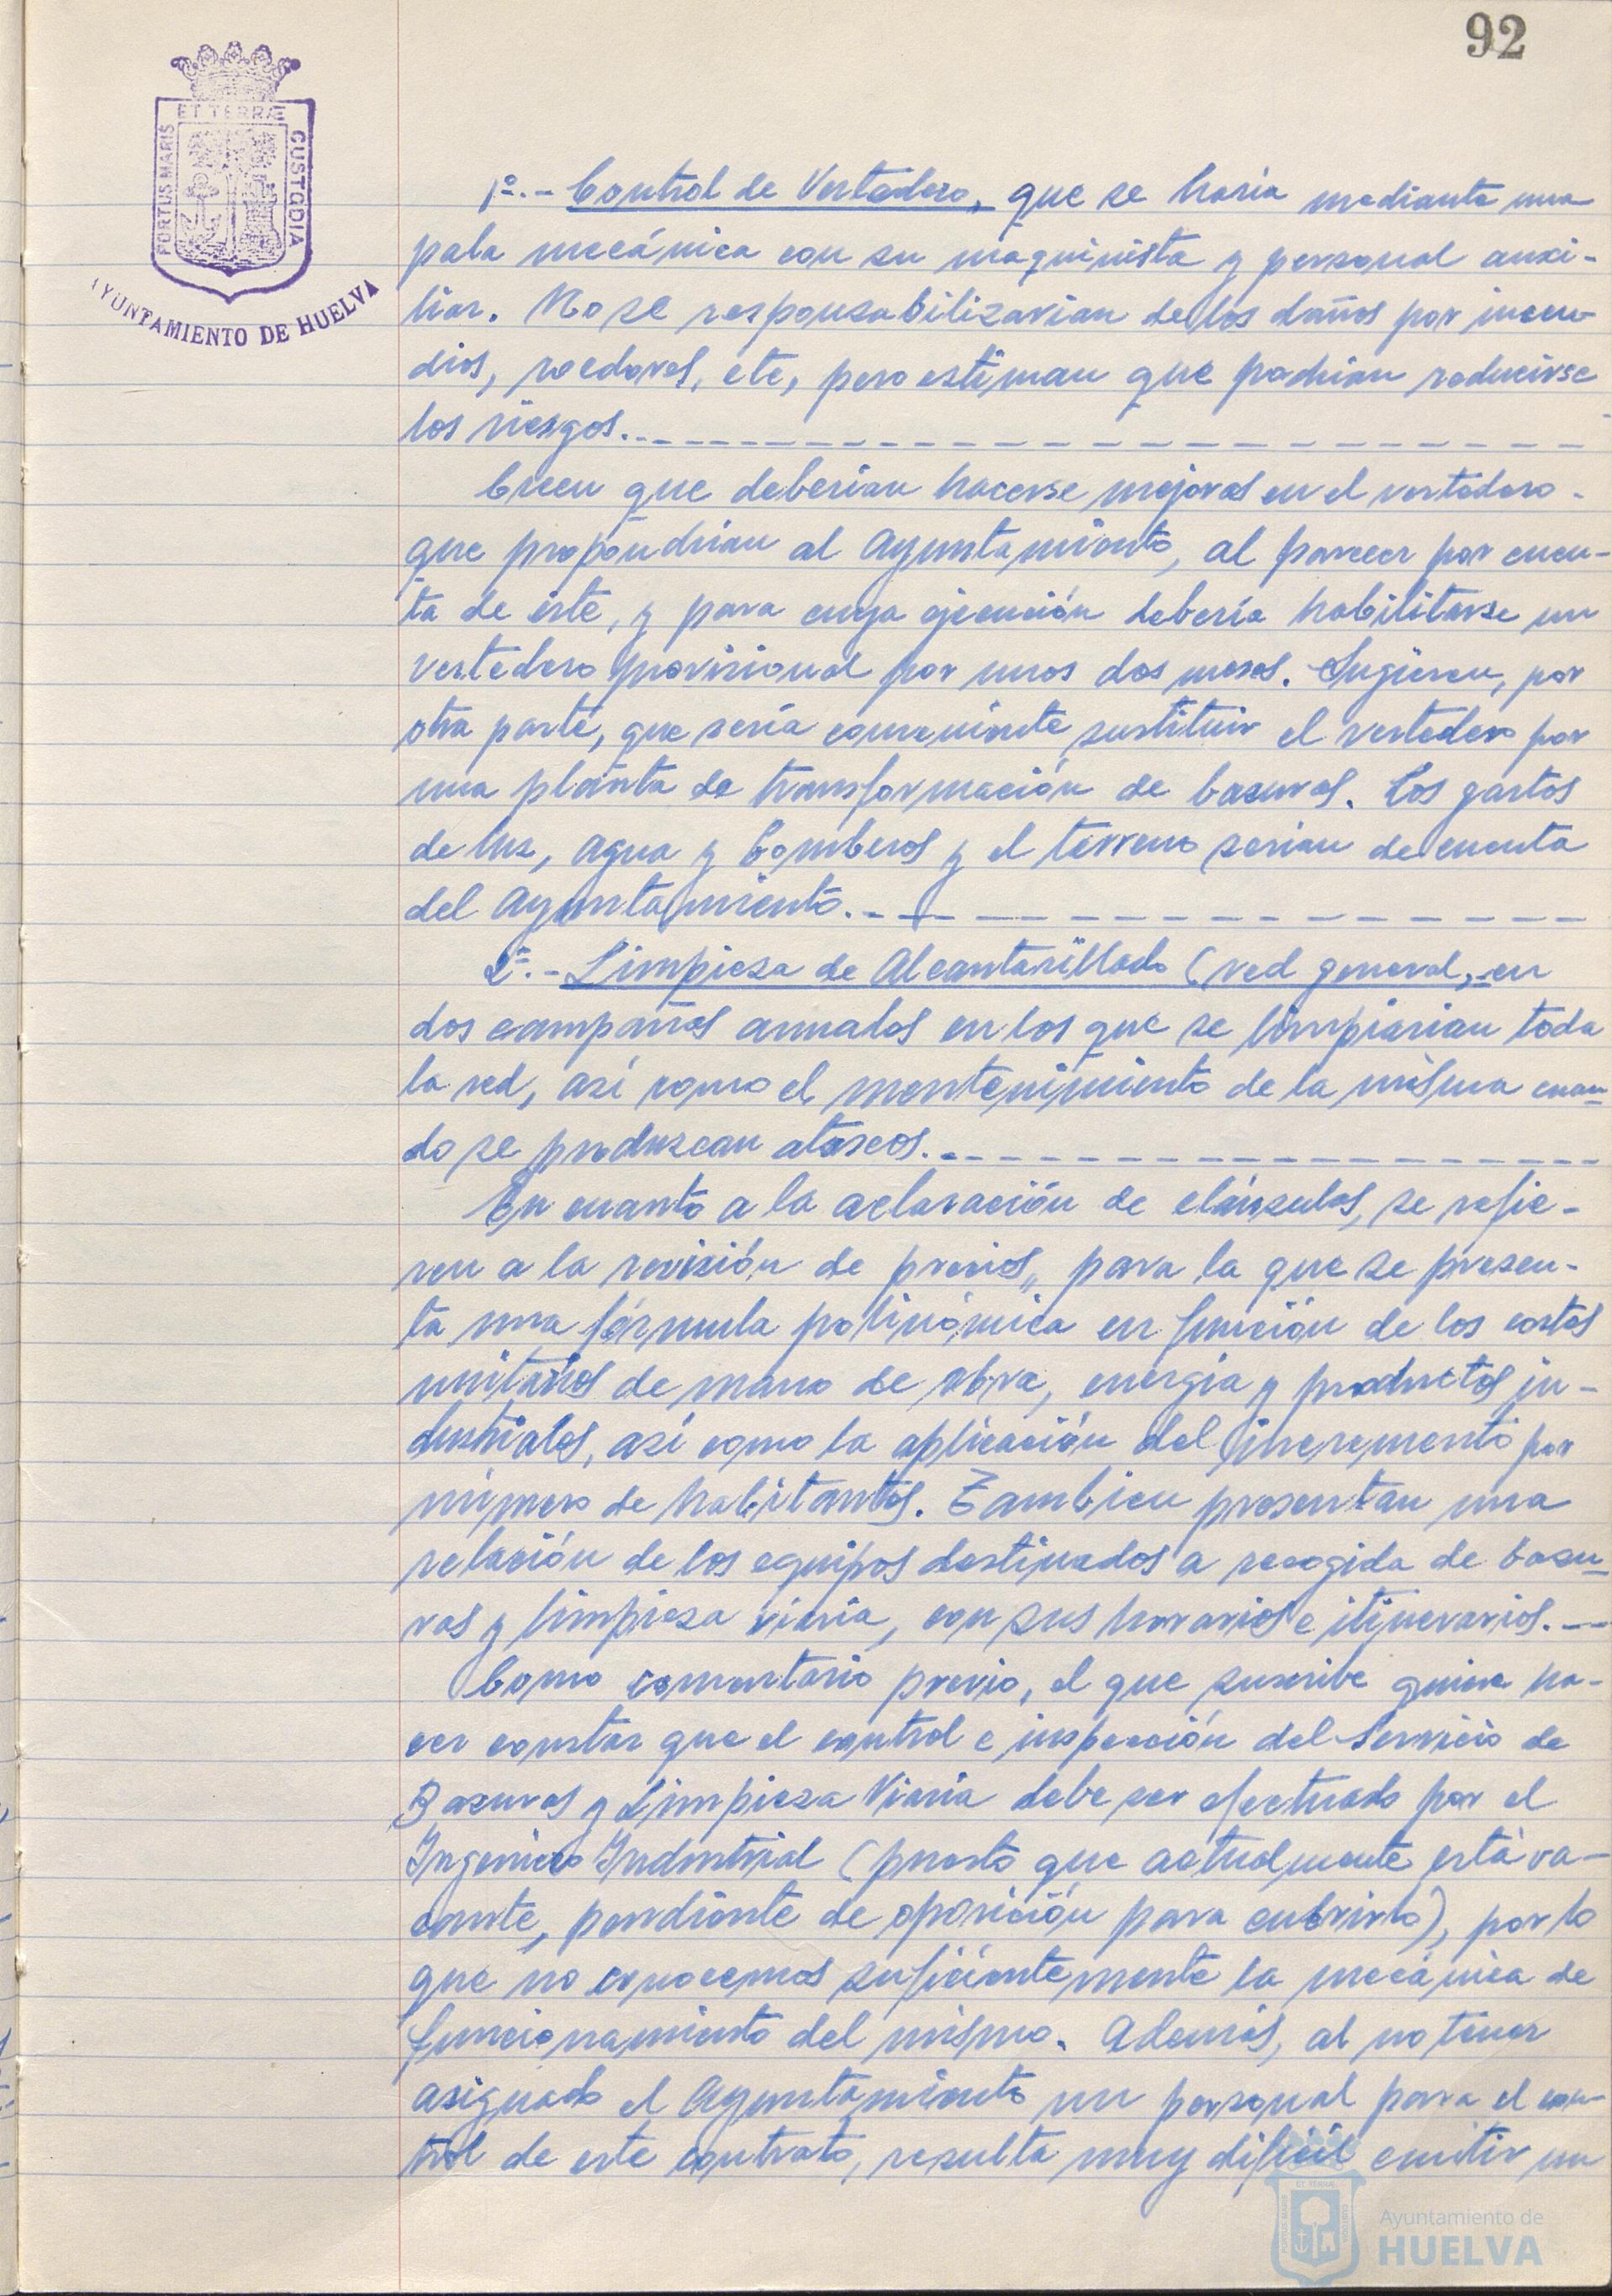 92
ET TERRÆ
PORTUS MARIS
CUSTODIA
AYUNTAMIENTO DE HUELVA
1º.- Control de Vertedero, que se haria mediante una
pala mecánica con su maquinista y personal auxi-
liar. No se responsabilizarian de los daños por incen-
dios, roedores, etc, pero estiman que podrian reducirse
los riesgos.
Creen que deberian hacerse mejoras en el vertedero
que propondrian al Ayuntamiento, al parecer por cuen-
ta de éste, y para cuya ejecución debería habilitarse un
vertedero provisional por unos dos meses. Sugieren, por
otra parte, que sería conveniente sustituir el vertedero por
una planta de transformación de basuras. Los gastos
de luz, agua y bomberos y el terreno serian de cuenta
del Ayuntamiento.
2º.- Limpieza de Alcantarillado (red general, en
dos campañas anuales en los que se limpiarian toda
la red, así como el mantenimiento de la misma cuan-
do se produzcan atascos.
En cuanto a la aclaración de cláusulas, se refie-
ren a la revisión de precios, para la que se presen-
ta una fórmula polinómica en función de los costos
unitarios de mano de obra, energía y productos in-
dustriales, así como la aplicación del incremento por
número de habitantes. Tambien presentan una
relación de los equipos destinados a recogida de basu-
ras y limpieza viaria, con sus horarios e itinerarios.
Como comentario previo, el que suscribe quiere ha-
cer constar que el control e inspección del Servicio de
Basuras y Limpieza Viaria debe ser efectuado por el
Ingeniero Industrial (puesto que actualmente está va-
cante, pendiente de oposición para cubrirlo), por lo
que no conocemos suficientemente la mecánica de
funcionamiento del mismo. Además, al no tener
asignado el Ayuntamiento un personal para el con-
trol de este contrato, resulta muy difícil emitir un
Ayuntamiento de
HUELVA